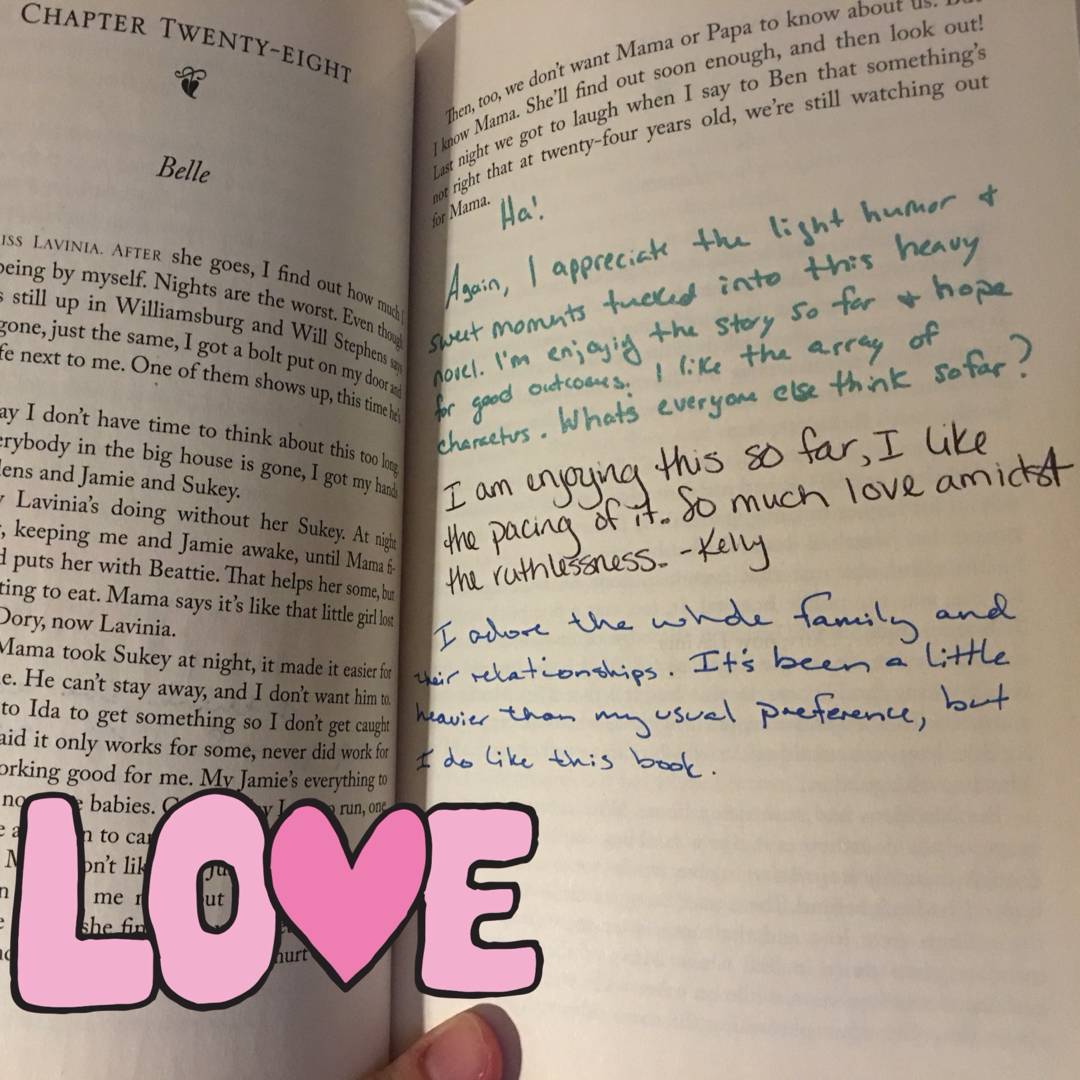 CHAPTER TWENTY-EIGHT
Belle
ISS LAVINIA. AFTER she goes, I find out how much I
being by myself. Nights are the worst. Even though
s still up in Williamsburg and Will Stephens says
gone, just the same, I got a bolt put on my door and
fe next to me. One of them shows up, this time he's
ay I don't have time to think about this too long
erybody in the big house is gone, I got my hands
lens and Jamie and Sukey.
y Lavinia's doing without her Sukey. At night
, keeping me and Jamie awake, until Mama fi-
d puts her with Beattie. That helps her some, but
ting to eat. Mama says it's like that little girl lost
Dory, now Lavinia.
Mama took Sukey at night, it made it easier for
e. He can't stay away, and I don't want him to.
to Ida to get something so I don't get caught
aid it only works for some, never did work for
orking good for me. My Jamie's everything to
no babies. run, one
n to
on't
me ut
she
hurt
LOVE
Then, too, we don't want Mama or Papa to know about us. But
I know Mama. She'll find out soon enough, and then look out!
Last night we got to laugh when I say to Ben that something's
not right that at twenty-four years old, we're still watching out
for Mama.
Ha!
Again, I appreciate the light humor &
sweet moments tucked into this heavy
novel. I'm enjoyig the story so far & hope
for good outcomes. I like the array of
charactrs. Whats everyone else think so far?
I am enjoying this so far, I like
the pacing of it. So much love amidst
the ruthlessness. -Kelly
I adore the whole family and
their relationships. It's been a little
heavier than my usual preference, but
I do like this book.